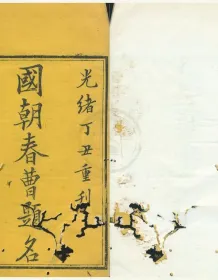 光緒丁丑重刊
國朝春曹題名